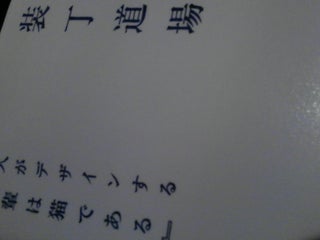 装丁道場
人がデザインする
輩は猫である』